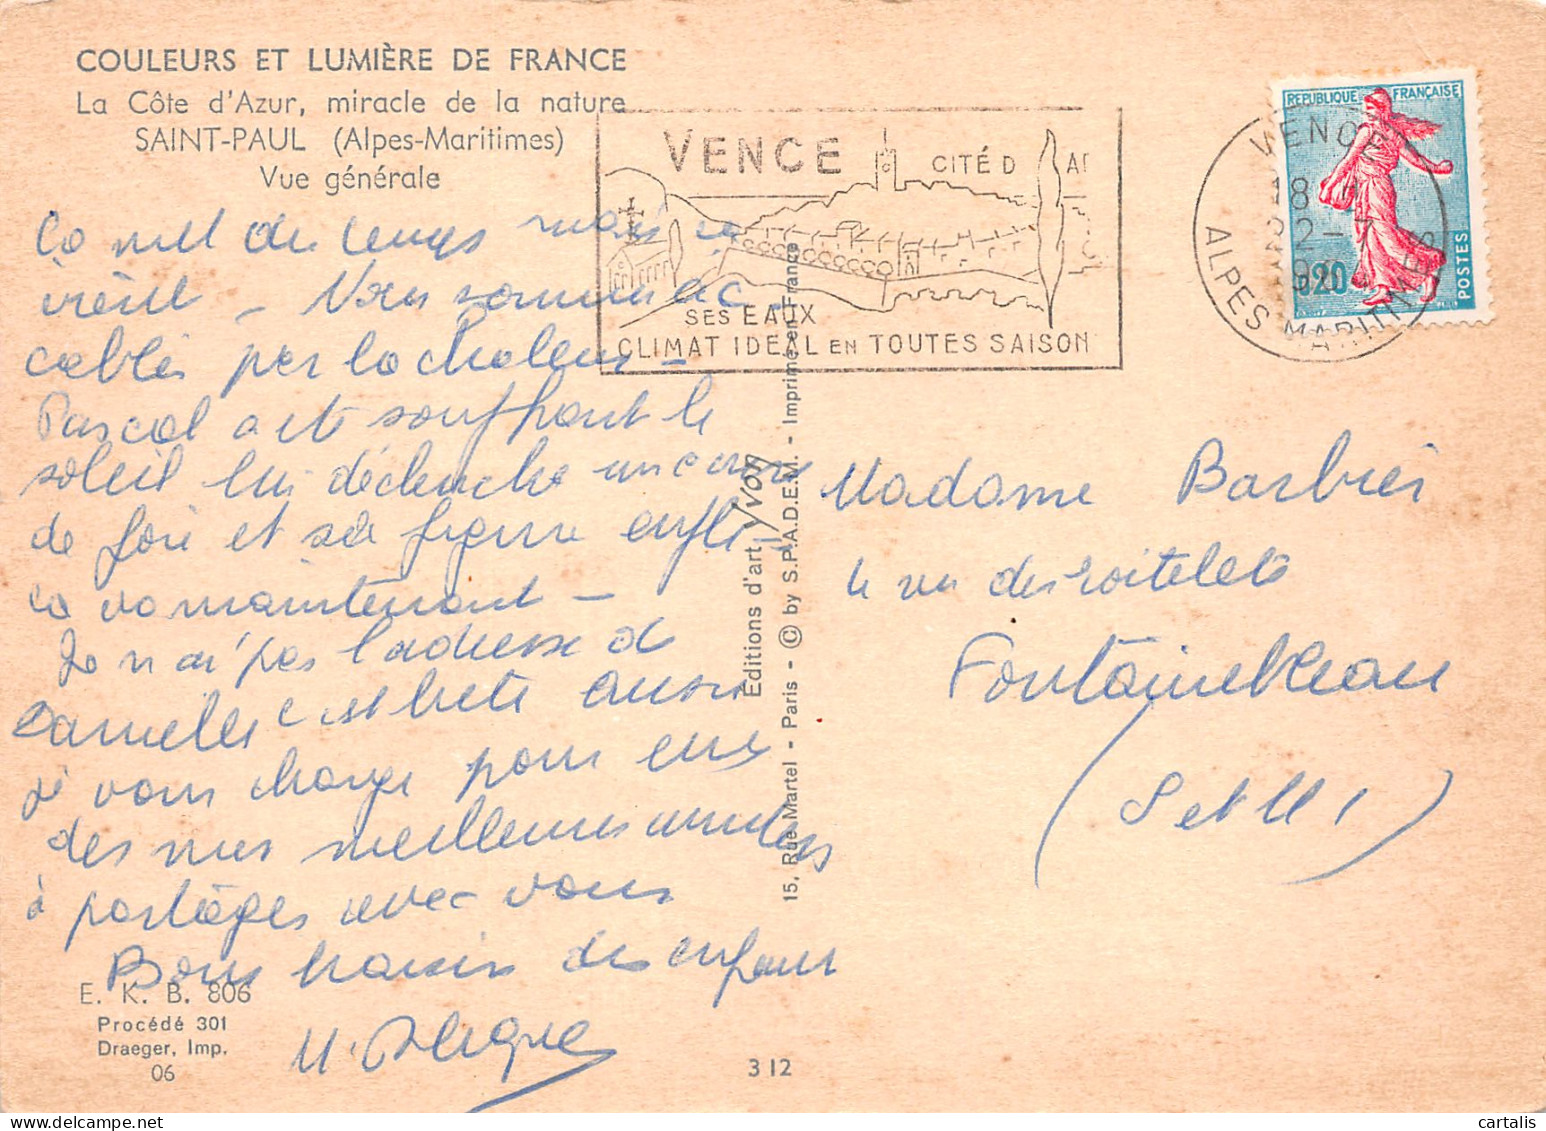 COULEURS ET LUMIÈRE DE FRANCE
La Côte d'Azur, miracle de la nature
SAINT-PAUL (Alpes-Maritimes)
Vue générale
ça met du temps mais ça
vient - Nous sommes ac
cablés par la chaleur -
Pascal a été souffrant le
soleil lui déclenche une crise
de foie et sa figure enfle
ça va maintenant -
Je n'ai pas l'adresse de
c'est bête aussi
je vous charge pour eux
des mes meilleures amitiés
à partager avec vous
Bons baisers des enfants
E. K. B. 806
Procédé 301
Draeger, Imp.
06
312
Editions d'art Yvon
15, Rue Martel - Paris - © by S.P.A.D.E.M. - Imprimé en France
VENCE
CITÉ D AR
SES EAUX
CLIMAT IDEAL EN TOUTES SAISON
VENCE
18 H
2-7
ALPES MARITIMES
REPUBLIQUE FRANÇAISE
0,20
POSTES
Madame Barbier
4 rue des roitelets
Fontainebleau
(Set M)
cartalis